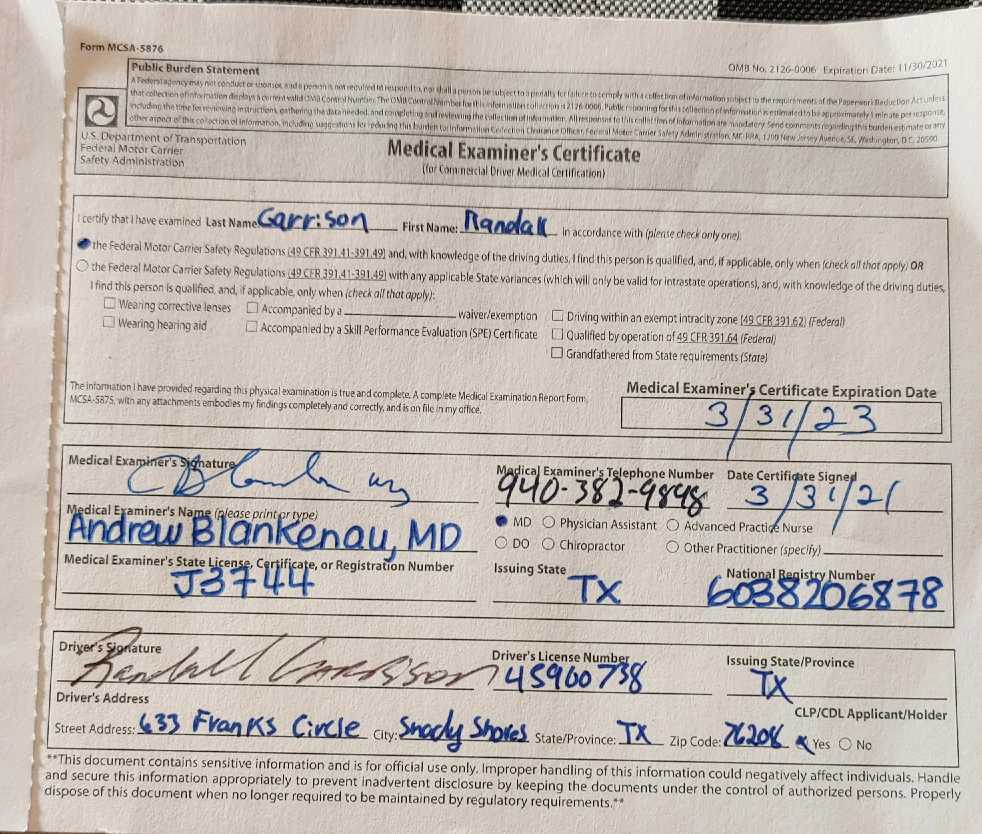 Form MCSA-5876
OMB No. 2126-0006 Expiration Date: 11/30/2021
Public Burden Statement
A Federal agency may not conduct or sponsor, and a person is not required to respond to, nor shall a person be subject to a penalty for failure to comply with a collection of information subject to the requirements of the Paperwork Reduction Act unless
that collection of information displays a current valid OMB Control Number. The OMB Control Number for this information collection is 2126-0006. Public reporting for this collection of information is estimated to be approximately 1 minute per response,
including the time for reviewing instructions, gathering the data needed, and completing and reviewing the collection of information. All responses to this collection of information are mandatory. Send comments regarding this burden estimate or any
other aspect of this collection of information, including suggestions for reducing this burden to: Information Collection Clearance Officer, Federal Motor Carrier Safety Administration, MC-RRA, 1200 New Jersey Avenue, SE, Washington, D.C. 20590.
U.S. Department of Transportation
Federal Motor Carrier
Safety Administration
Medical Examiner's Certificate
(for Commercial Driver Medical Certification)
I certify that I have examined Last Name: Garrison First Name: Randall In accordance with (please check only one):
the Federal Motor Carrier Safety Regulations (49 CFR 391.41-391.49) and, with knowledge of the driving duties, I find this person is qualified, and, if applicable, only when (check all that apply) OR
the Federal Motor Carrier Safety Regulations (49 CFR 391.41-391.49) with any applicable State variances (which will only be valid for intrastate operations), and, with knowledge of the driving duties,
I find this person is qualified, and, if applicable, only when (check all that apply):
Wearing corrective lenses Accompanied by a waiver/exemption Driving within an exempt intracity zone (49 CFR 391.62) (Federal)
Wearing hearing aid Accompanied by a Skill Performance Evaluation (SPE) Certificate Qualified by operation of 49 CFR 391.64 (Federal)
Grandfathered from State requirements (State)
The information I have provided regarding this physical examination is true and complete. A complete Medical Examination Report Form,
MCSA-5875, with any attachments embodies my findings completely and correctly, and is on file in my office.
Medical Examiner's Certificate Expiration Date
3/31/23
Medical Examiner's Signature Medical Examiner's Telephone Number Date Certificate Signed
940-382-9898 3/31/21
Medical Examiner's Name (please print or type)
Andrew Blankenau, MD
MD Physician Assistant Advanced Practice Nurse
DO Chiropractor Other Practitioner (specify)
Medical Examiner's State License, Certificate, or Registration Number Issuing State National Registry Number
J3744 TX 6038206878
Driver's Signature Driver's License Number Issuing State/Province
Randall Garrison 45900738 TX
Driver's Address CLP/CDL Applicant/Holder
Street Address: 633 Franks Circle City: Shady Shores State/Province: TX Zip Code: 76208 Yes No
**This document contains sensitive information and is for official use only. Improper handling of this information could negatively affect individuals. Handle
and secure this information appropriately to prevent inadvertent disclosure by keeping the documents under the control of authorized persons. Properly
dispose of this document when no longer required to be maintained by regulatory requirements.**